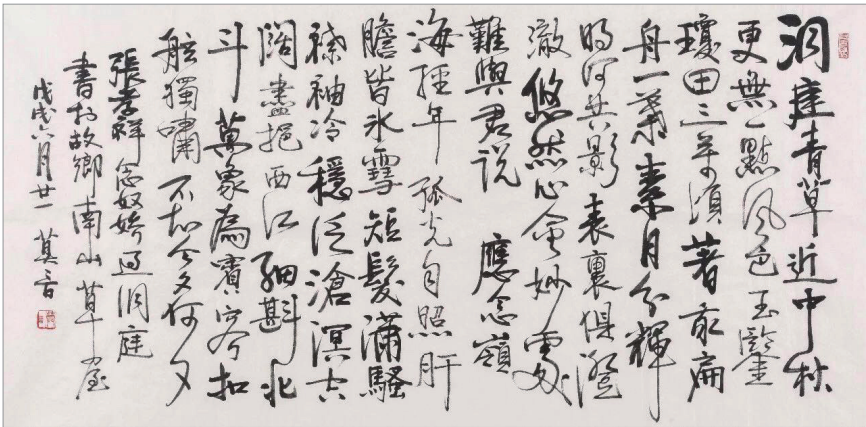 洞庭青草近中秋
更無一點風色玉鑒
瓊田三萬頃著我扁
舟一葉素月分輝
明河共影表裏俱澄
澈悠然心會妙處
難與君說 應念嶺
海經年孤光自照肝
膽皆冰雪短髮瀟騷
襟袖冷穩泛滄溟空
闊盡挹西江細斟北
斗萬象為賓客扣
舷獨嘯不知今夕何夕
張孝祥念奴嬌過洞庭
書於故鄉南山草屋
戊戌六月廿一 莫言